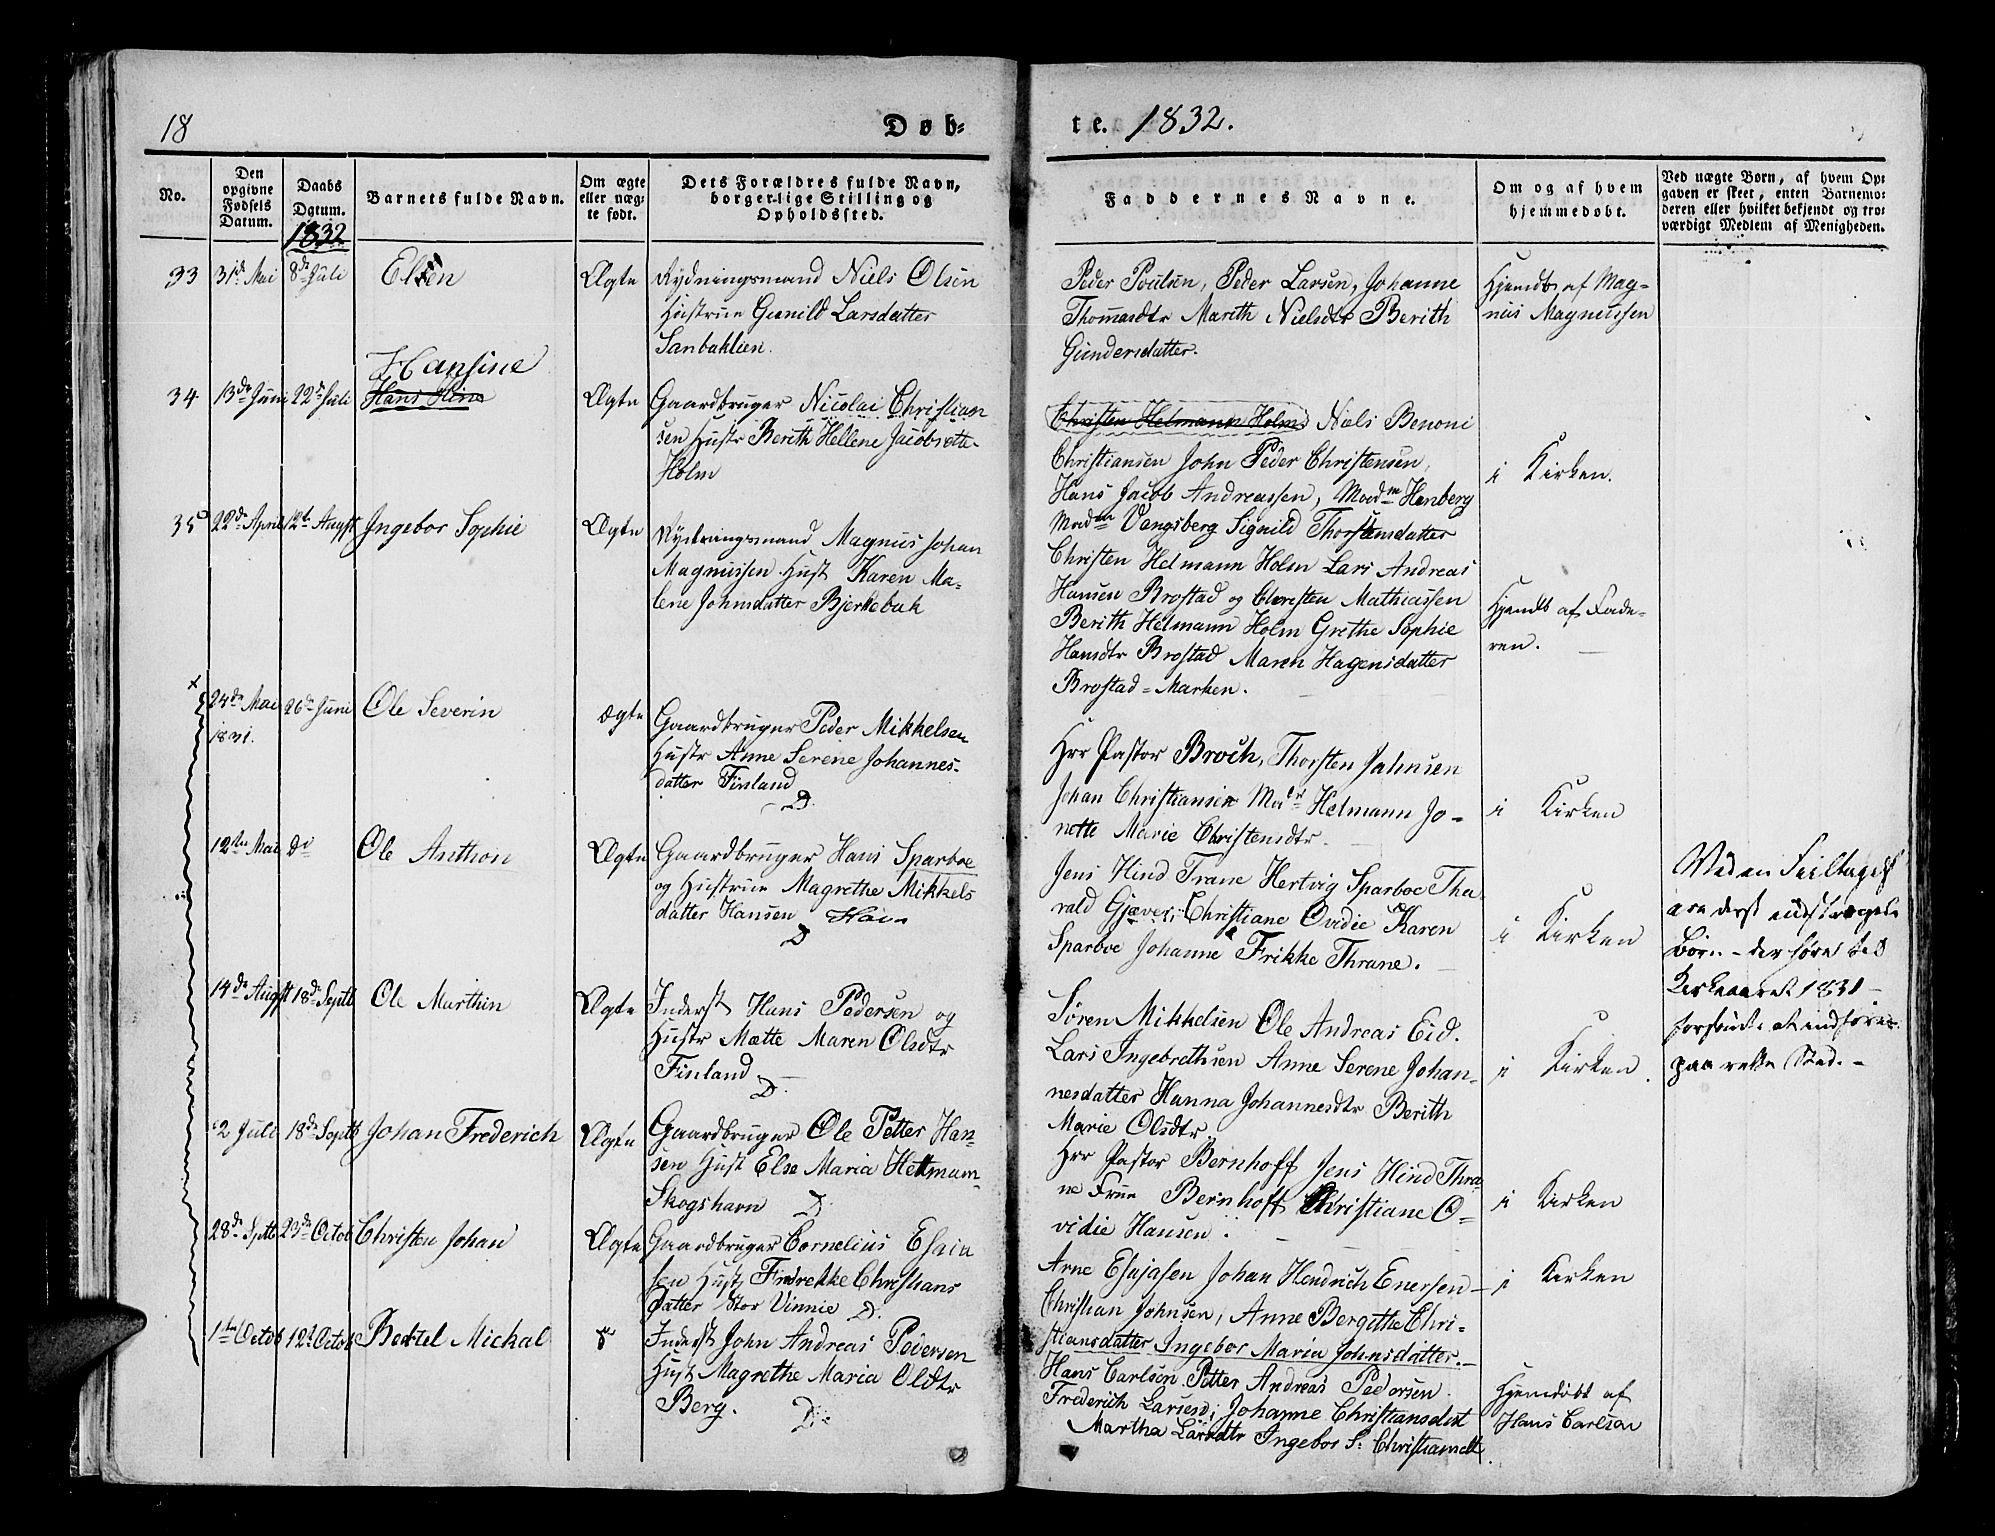 18
Døb-
te. 1832.
No.
Den opgivne Fødsels Datum.
Daabs Datum.
1832
Barnets fulde Navn.
Om ægte eller uægte født.
Dets Forældres fulde Navn, borgerlige Stilling og Opholdssted.
Faddernes Navne.
Om og af hvem hjemmedøbt.
Ved uægte Børn, af hvem Opgaven er skeet, enten Barnemoderen eller hvilket bekjendt og troværdigt Medlem af Menigheden.
33
31de Mai
8de Juli
Elen
Ægte
Rydningsmand Niels Olsen
Hustrue Gunild Larsdatter
Sanbaklien.
Peder Poulsen, Peder Larsen, Johanne
Thomasdtr Marith Nielsdtr Berith
Gundersdatter.
Hjemdbt af Mag-
nus Magnussen
34
13de Juni
22de Juli
Hansine
Hans Hina
Ægte
Gaardbruger Nicolai Christian
sen Hustr Berith Hellene Jacobsdtt.
Holm
Christen Helmann Holm. Niels Benoni
Christiansen John Peder Christensen,
Hans Jacob Andreassen, Madm Hanberg
Madm Vangsberg Signild Thorstensdatter
i Kirken.
35
22de April
12te Augst
Ingebor Sophie
Ægte
Rydningsmand Magnus Johan
Magnussen Hust Karen Ma-
lene Johnsdatter Bjerkebak
Christen Helmann Holm Lars Andreas
Hansen Brostad og Christen Mathiassen
Berith Helmann Holm Grethe Sophie
Hansdtr Brostad Maren Hagensdatter
Brostad=Marken.
Hjemdt af Fade-
ren.
x
24de Mai
1831.
26de Juni
Ole Severin
Ægte
Gaardbruger Peder Mikkelsen
Hustr Anne Serene Johannes-
datter Finland
D.
Hrr Pastor Broch, Thorsten Jahnsen
Johan Christiansen Mad Helmann Jo-
nette Marie Christensdtr.
i Kirken
12te Mai
do
Ole Anthon
Ægte
Gaardbruger Hans Sparboe
og Hustrue Magrethe Mikkels
datter Hansen
D
Jens Hind Trane Hertvig Sparboe Tha
rald Gjæver, Christiane Ovidie Karen
Sparboe Johanne Frikke Thrane.
i Kirken
Ved en Feiltagelse
ere derst indstregede
Børn - der høre til
Kirkeaaret 1831 -
forsømt at indføres
paa rette Sted. -
14de Augst
18de Septb
Ole Marthin
Ægte
Inderst Hans Pedersen og
Hustr Mætte Maren Olsdtr
Finland
D.
Søren Mikkelsen Ole Andreas Eid.
Lars Ingebrethsen Anne Serene Johan-
nesdatter Hanna Johannesdtr Berith
Marie Olsdtr
i Kirken.
2 Juli
18de Septb
Johan Frederich
Ægte
Gaardbruger Ole Petter Han-
sen Hust Else Maria Heltmam-
Skogshavn
D.
Hrr Pastor Bernhoff Jens Hind Thra-
ne Frue Bernhoff Christiane O=
vidie Hansen.
i Kirken
28de Septb
23de Octob
Christen Johan
Ægte
Gaardbruger Cornelius Esaia
sen Hust Fredrekke Christians
datter Stor Vinnie D.
Arne Esajasen Johan Hendrich Enersen-
Christian Johnsen, Anne Bergithe Chri-
stiansdatter Ingebor Maria Johnsdatter.-
i Kirken
1te Octob
12te Octob
Bertel Mickal
Inderst John Andreas Pedersen
Hust Magrethe Maria Olsdtr
Berg.
D.
Hans Carlsen Petter Andreas Pedersen.
Frederich Larsen, Johanne Christiansdat
Martha Larsdtr Ingebor S. Christiansdt.
Hjemdøbt af
Hans Carlson